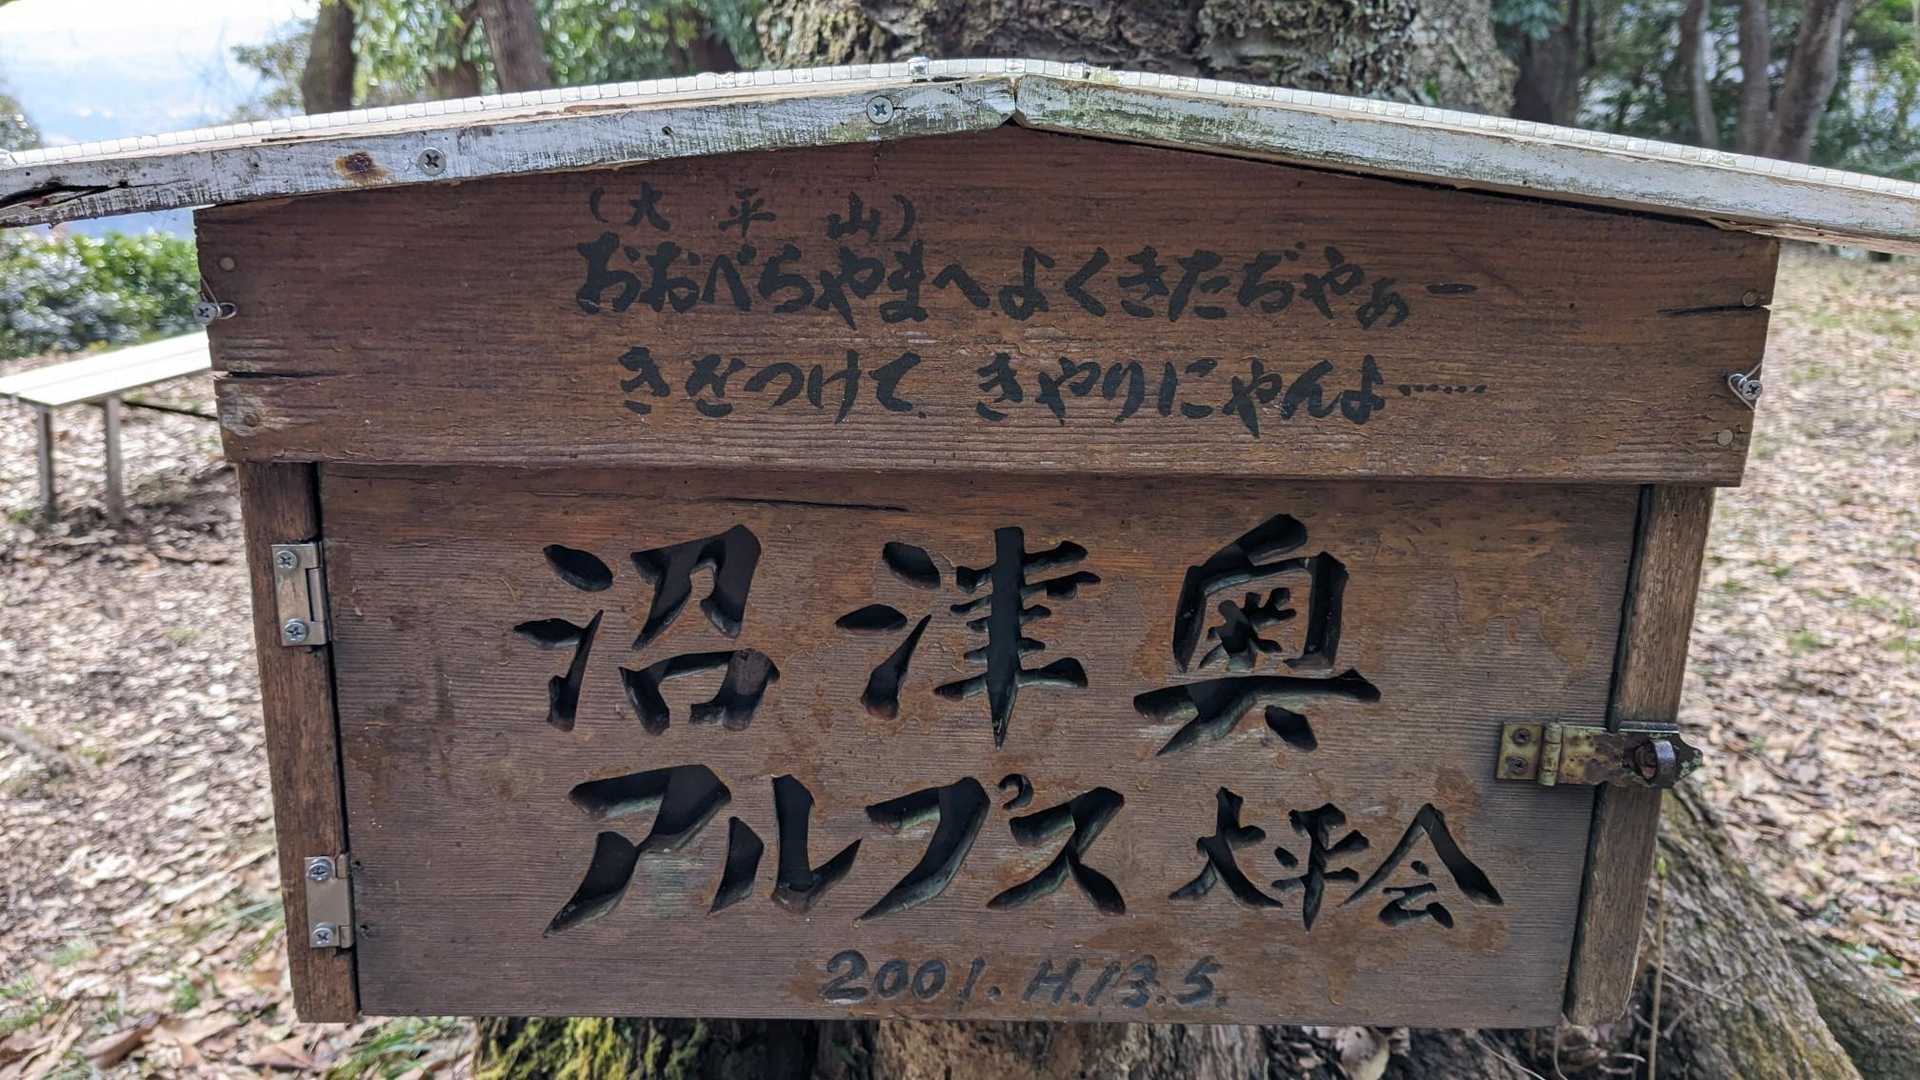 (大平山)
おおべらやまへよくきたぢゃぁー
きをつけて、きやりにゃんよ……
沼津奥
アルプス 大平会
2001.H.13.5.